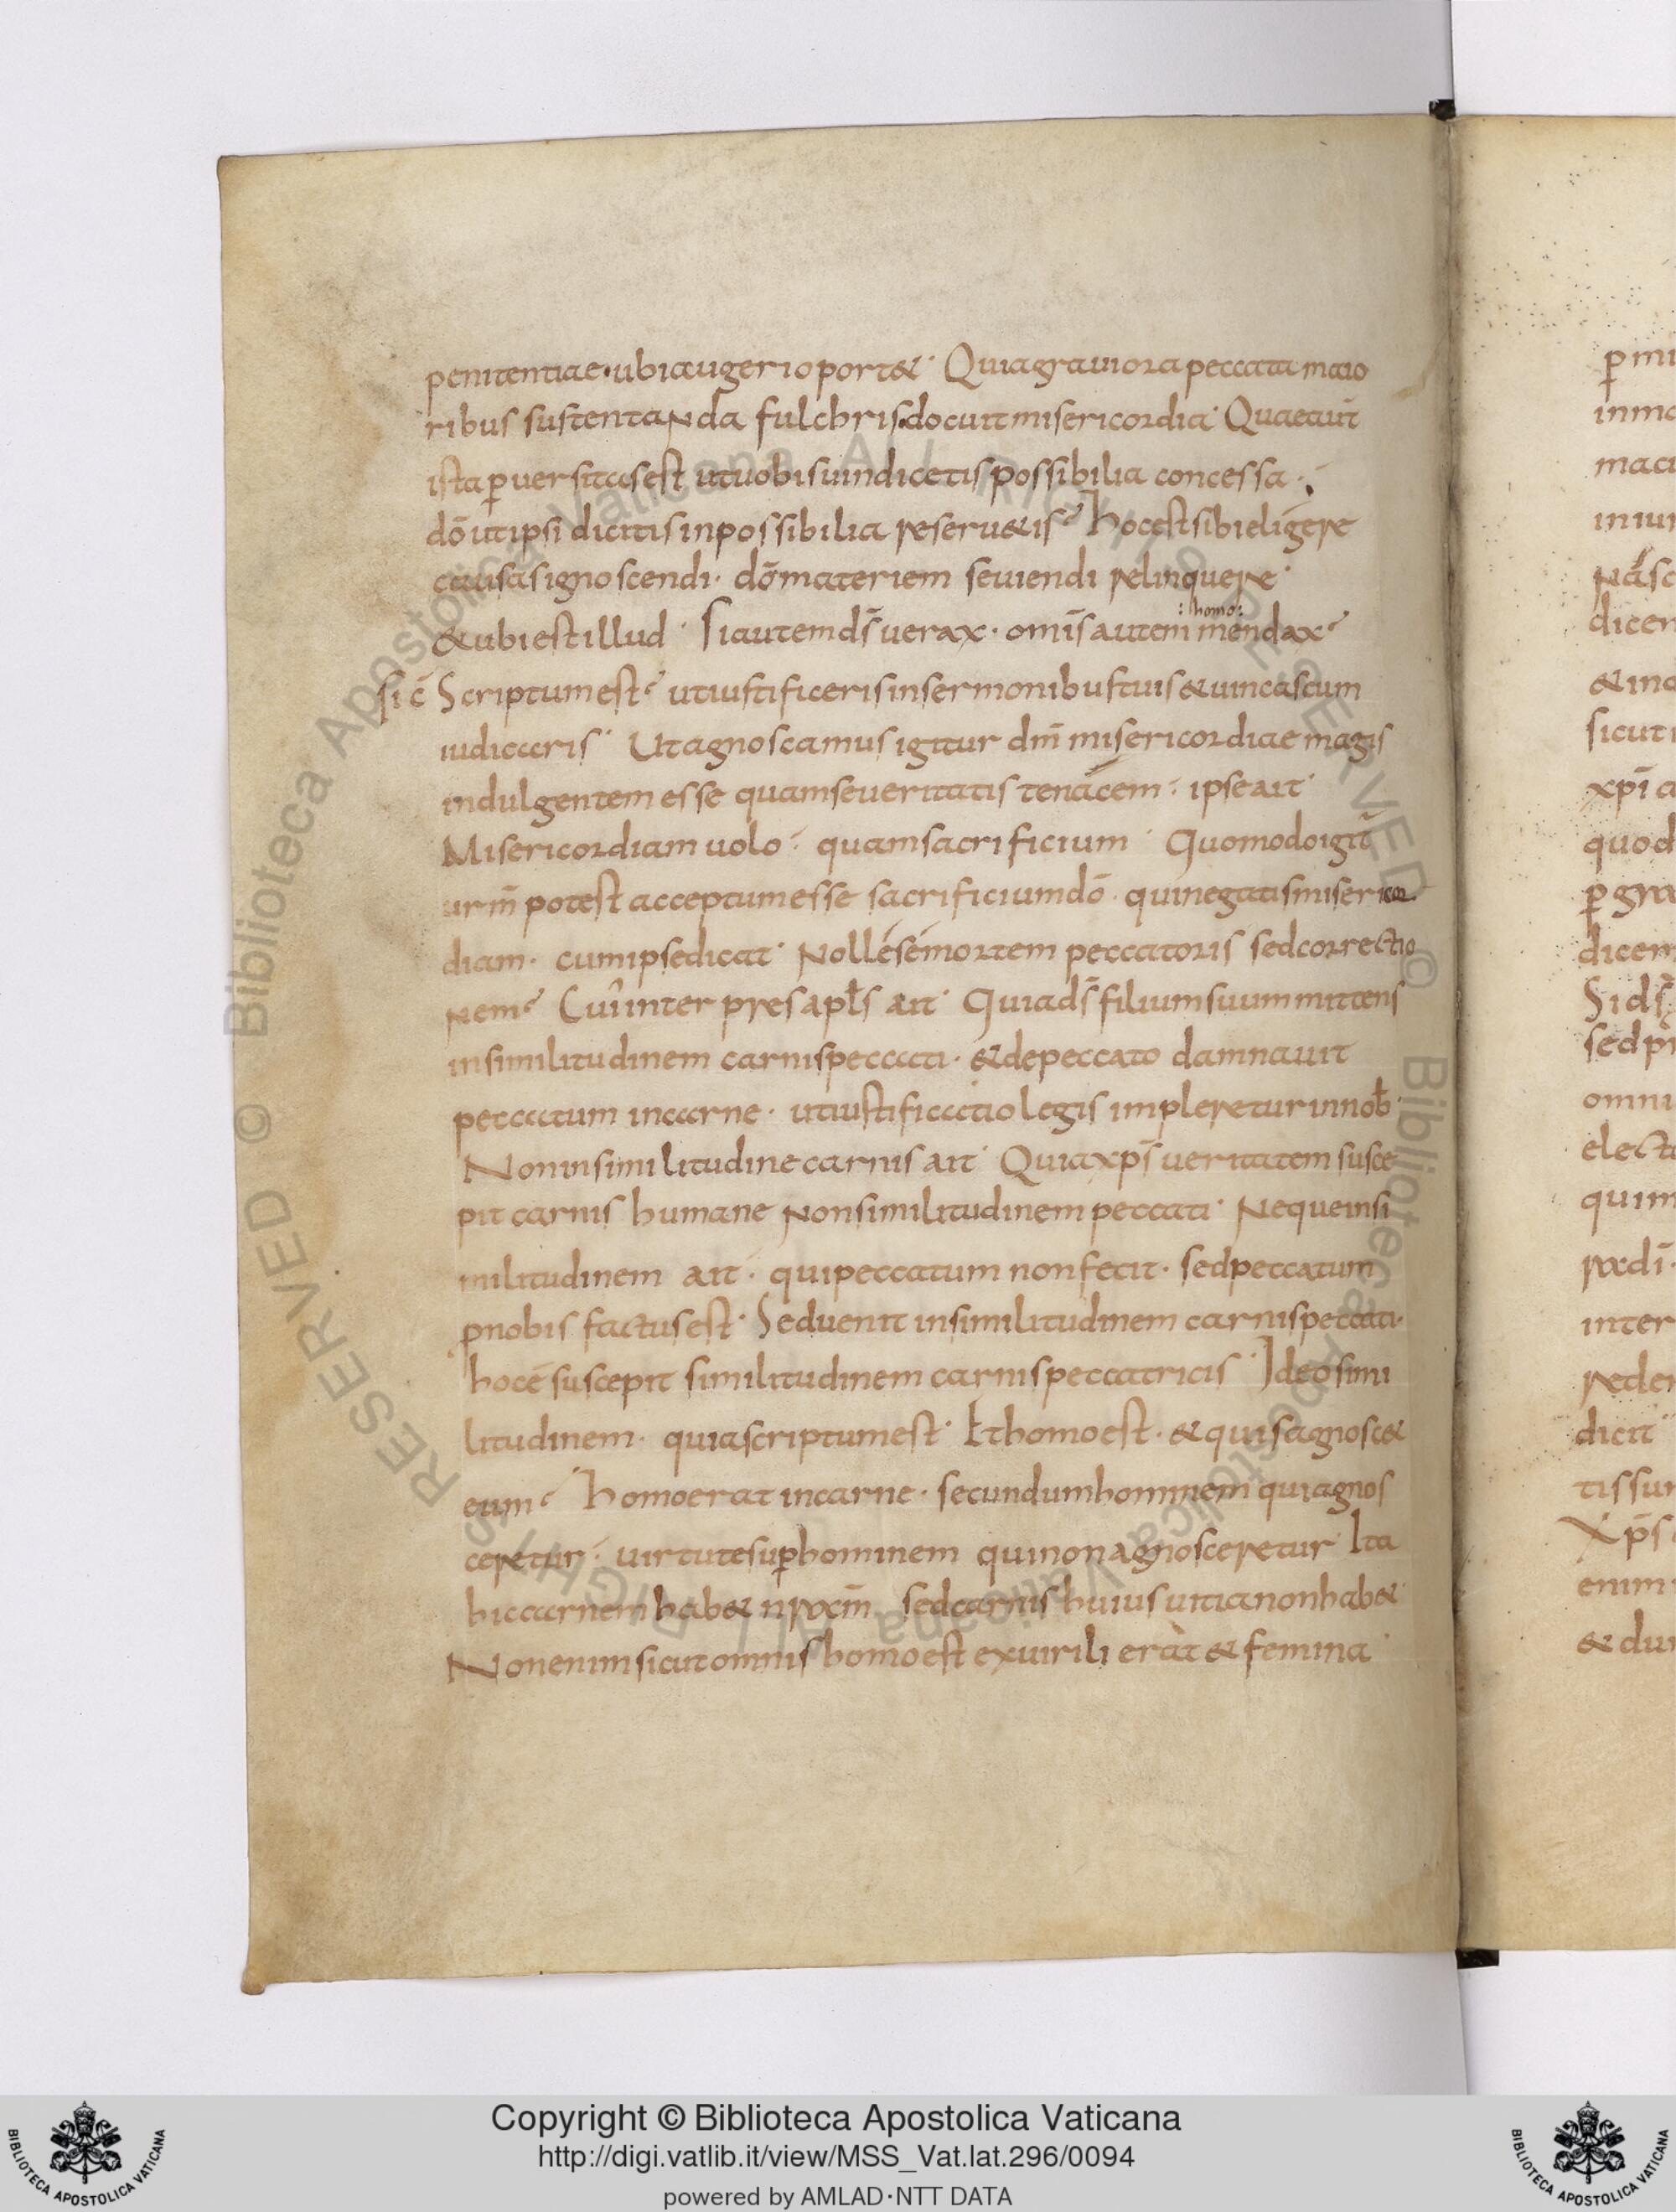 penitentiae · ubi augeri oport& · Quia graviora peccata maio
ribus sustentanda fulchris · docuit misericordia · Quae aut̄
ista ꝑuersitas est ut uobis uindicetis possibilia concessa ·
dō ut ipsi dicitis inpossibilia reseru&is Hoc est sibi eligere
causas ignoscendi · dō materiem seuiendi relinquere ·
:homo:
& ubi est illud · Si autem ds̄ uerax · omīs autem mendax
sic̄ Scriptum est ut iustificeris in sermonibus tuis & uincas cum
iudicaris · Ut agnoscamus igitur dm̄ misericordiae magis
indulgentem esse quam seueritatis tenacem · ipse ait ·
Misericordiam uolo · quam sacrificium · Quomodo igit̄
urm̄ potest acceptum esse sacrificium dō · qui negatis misericor
diam · cum ipse dicat · Nolle se mortem peccatoris sed correctio
nem Cui inter pres apl̄s ait · Quia ds̄ filium suum mittens
in similitudinem carnis peccati · & de peccato damnauit
peccatum in carne · ut iustificatio legis impleretur in nob̄ ·
Non in similitudine carnis ait · Quia xps̄ ueritatem susce
pit carnis humane Non similitudinem peccati · Neque in si
militudinem ait · qui peccatum non fecit · sed peccatum
ꝓ nobis factus est · Sed uenit in similitudinem carnis peccati ·
hoc ē suscepit similitudinem carnis peccatricis · Ideo simi
litudinem · quia scriptum est · Et homo est · & quis agnosc&
eum Homo erat in carne · secundum hominem qui agnos
ceretur · uirtute suꝑ hominem qui non agnosceretur Ita
hic carnem hab& nrām sed carnis huius uitia non hab& ·
Non enim sicut omnis homo est ex uirili erat & femina ·
ꝑ mi
inmo
maci
iniur
nasc
dicen
& ino
sicut
xpī a
quod
ꝑ gra
dicen
Si ds̄
sed
omni
electa
quim
inter
reden
dicit
tis sun
Xps̄
enim
& dui
© Biblioteca Apostolica Vaticana ALL RIGHTS RESERVED
BIBLIOTECA APOSTOLICA VATICANA
Copyright © Biblioteca Apostolica Vaticana
http://digi.vatlib.it/view/MSS_Vat.lat.296/0094
powered by AMLAD·NTT DATA
BIBLIOTECA APOSTOLICA VATICANA